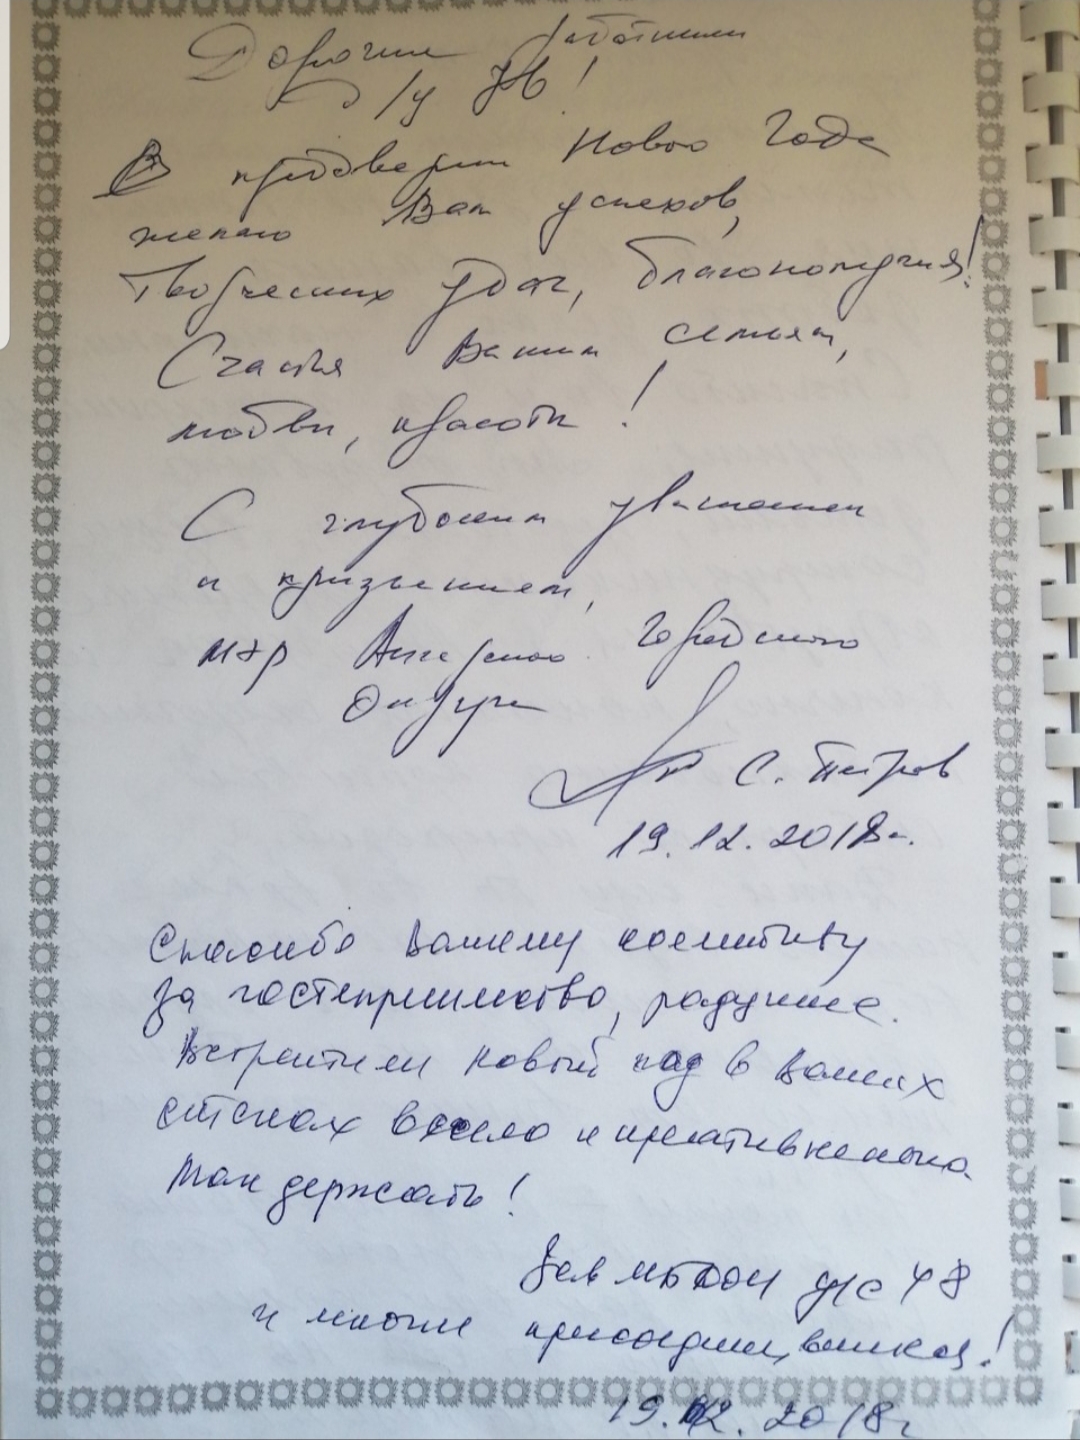 Дорогие работники
д/у №8!
В преддверии Нового Года
желаю Вам успехов,
Творческих удач, благополучия!
Счастья Вашим семьям,
любви, красоты!
С глубоким уважением
и признанием,
мэр Ангарского городского
Округа
С. Петров
19.12.2018г.
Спасибо Вашему коллективу
за гостеприимство, радушие.
Встретили Новый год в Ваших
стенах весело и креативненько.
Так держать!
Зав МБДОУ д/с 48
и многие присоединившиеся!
19.12.2018г